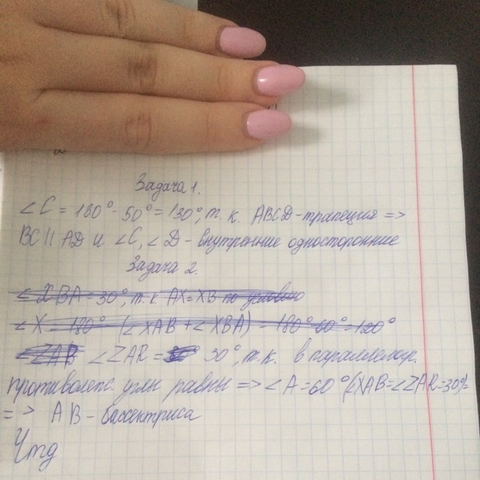 Задача 1.
∠C = 180° - 50° = 130°, т. к. ABCD - трапеция =>
BC || AD и ∠C, ∠D - внутренние односторонние
Задача 2.
∠XBA = 30°, т. к AX = XB по условию
∠X = 180° (∠XAB + ∠XBA) = 180° 60° = 120°
∠ZAB ∠ZAR = 30°, т.к. в параллелогр.
противопол. углы равны => ∠A = 60° (∠XAB = ∠ZAR = 30°) =
=> AB - биссектриса
Чтд